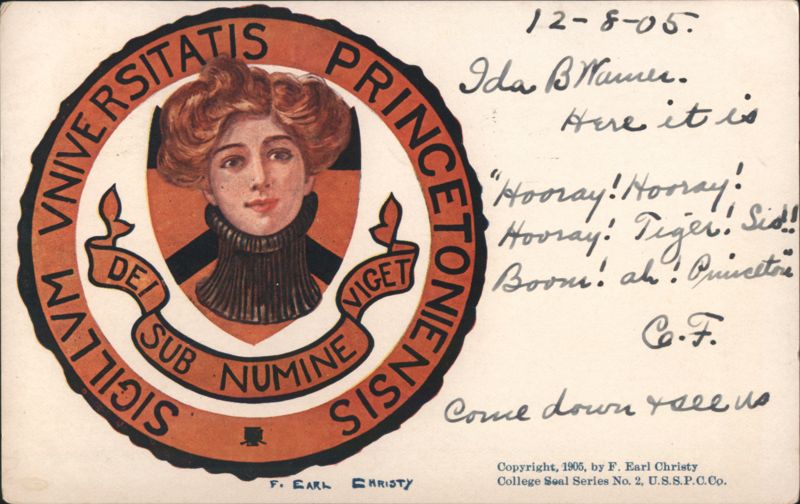 SIGILLVM VNIVERSITATIS PRINCETONIENSIS
DEI SUB NUMINE VIGET
F. EARL CHRISTY
12-8-05.
Ida B Warner.
Here it is
"Hooray! Hooray!
Hooray! Tiger! Sis!!
Boom! ah! Princeton"
C.F.
Come down & see us
Copyright, 1905, by F. Earl Christy
College Seal Series No. 2, U.S.S.P.C.Co.